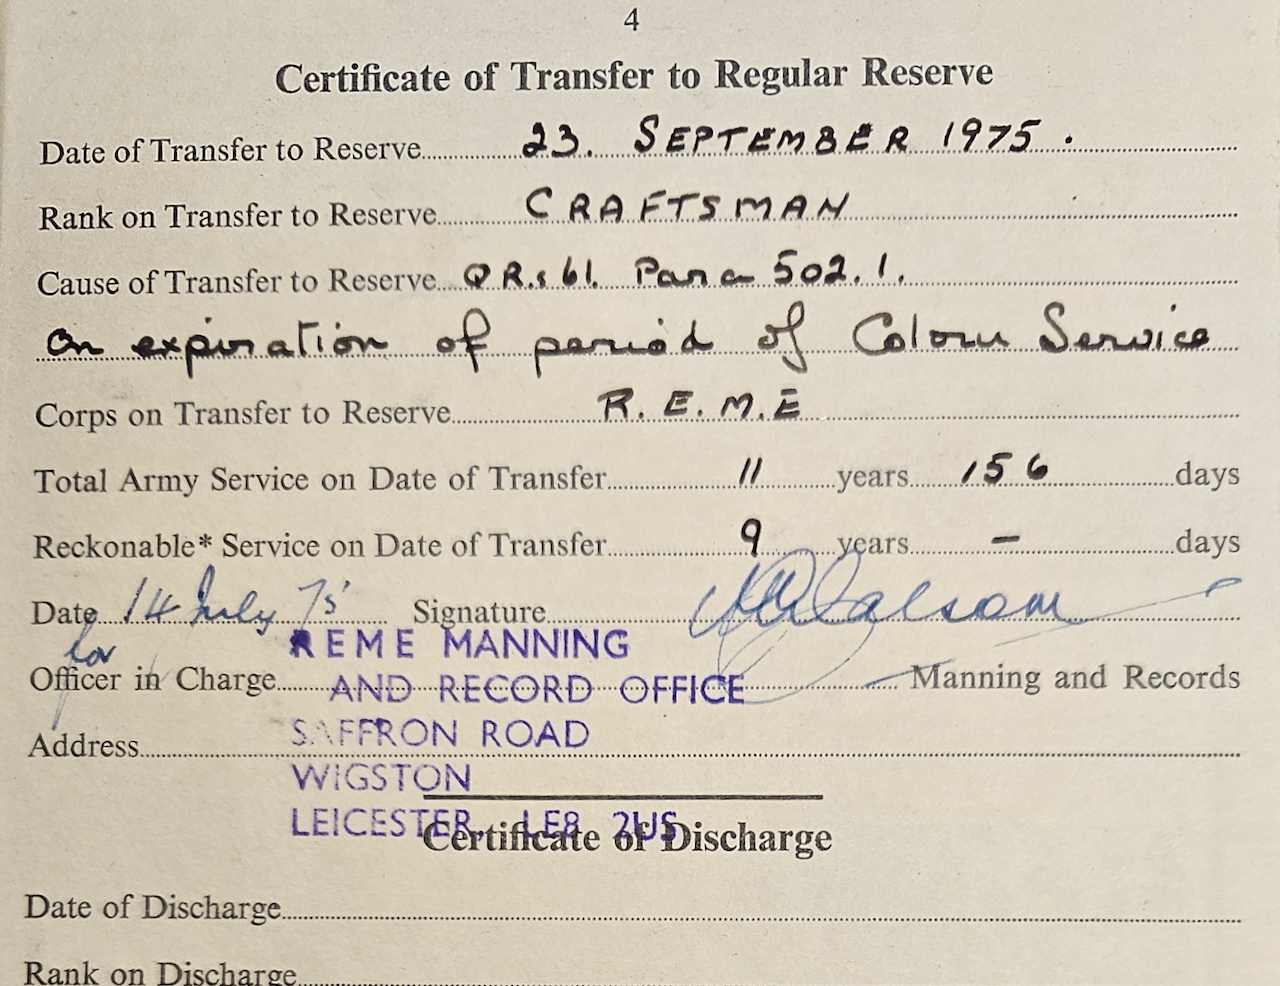 4
Certificate of Transfer to Regular Reserve
Date of Transfer to Reserve 23. SEPTEMBER 1975.
Rank on Transfer to Reserve CRAFTSMAN
Cause of Transfer to Reserve QR.s 61. Para 502.1.
On expiration of period of Colour Service
Corps on Transfer to Reserve R.E.M.E
Total Army Service on Date of Transfer 11 years 156 days
Reckonable* Service on Date of Transfer 9 years – days
Date 14 July 75 Signature
for
REME MANNING
Officer in Charge AND RECORD OFFICE Manning and Records
SAFFRON ROAD
Address
WIGSTON
LEICESTER, LE8 2US
Certificate of Discharge
Date of Discharge
Rank on Discharge